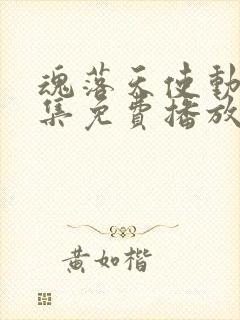 魂落天使動
集免費播放
黃如楷